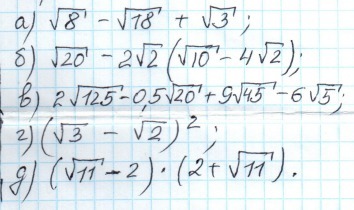 а) √8 - √18 + √3;
б) √20 - 2√2 (√10 - 4√2);
в) 2√125 - 0,5√20 + 9√45 - 6√5;
г) (√3 - √2)²;
д) (√11 - 2) · (2 + √11).